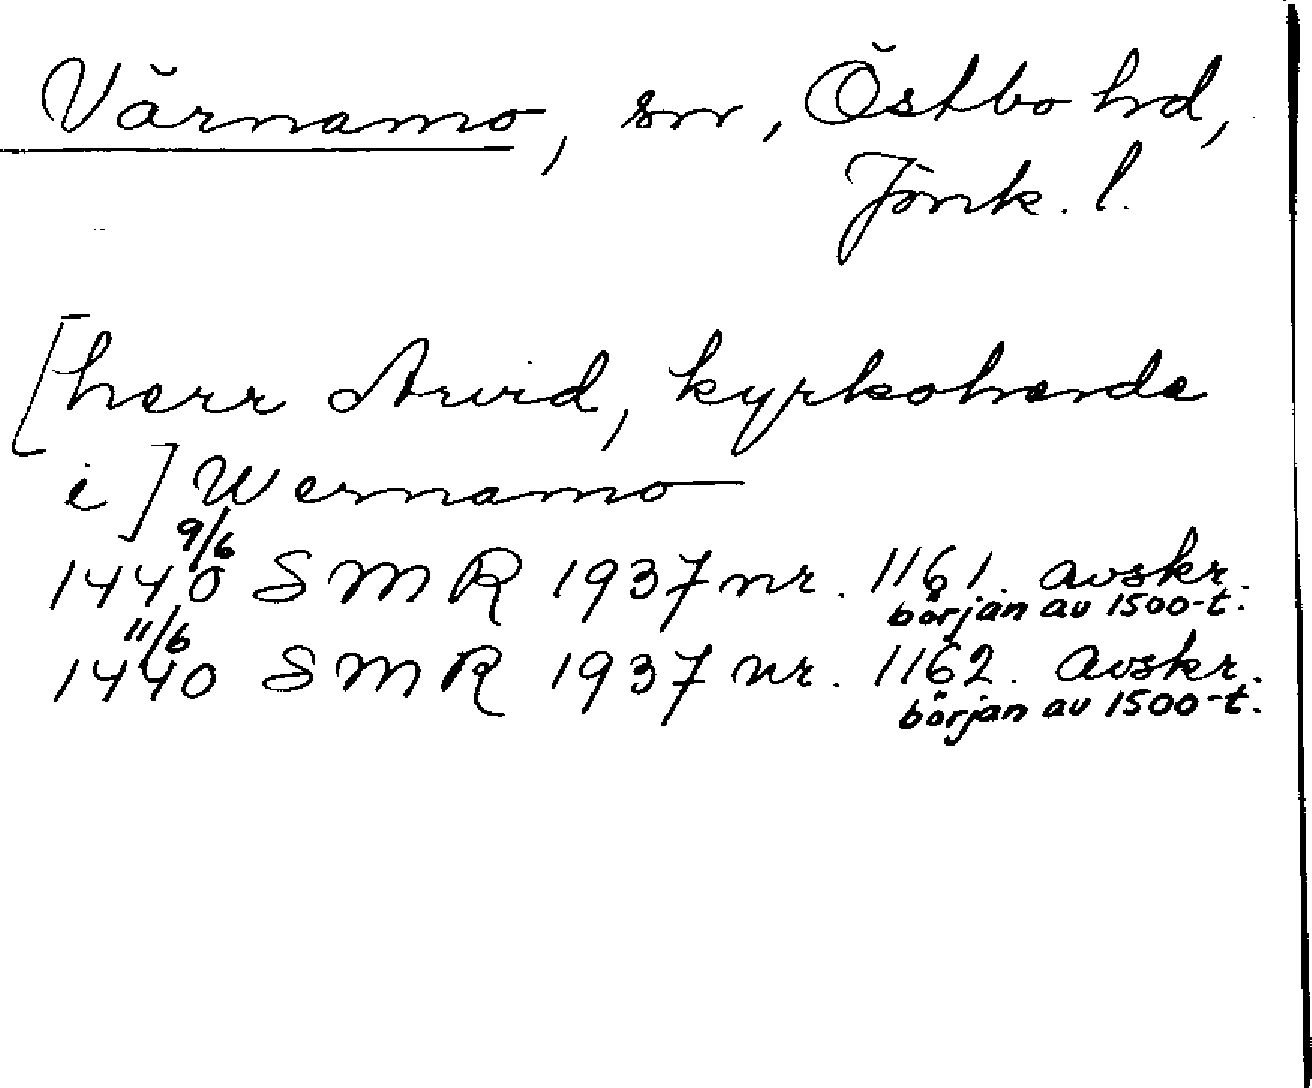 Värnamo, sn, Östbo hd,
Jönk. l.
[herr Arvid, kyrkoherde
i] Wernamo
9/6
1440 SMR 1937 nr. 1161. avskr.
början av 1500-t.
11/6
1440 SMR 1937 nr. 1162. avskr.
början av 1500-t.